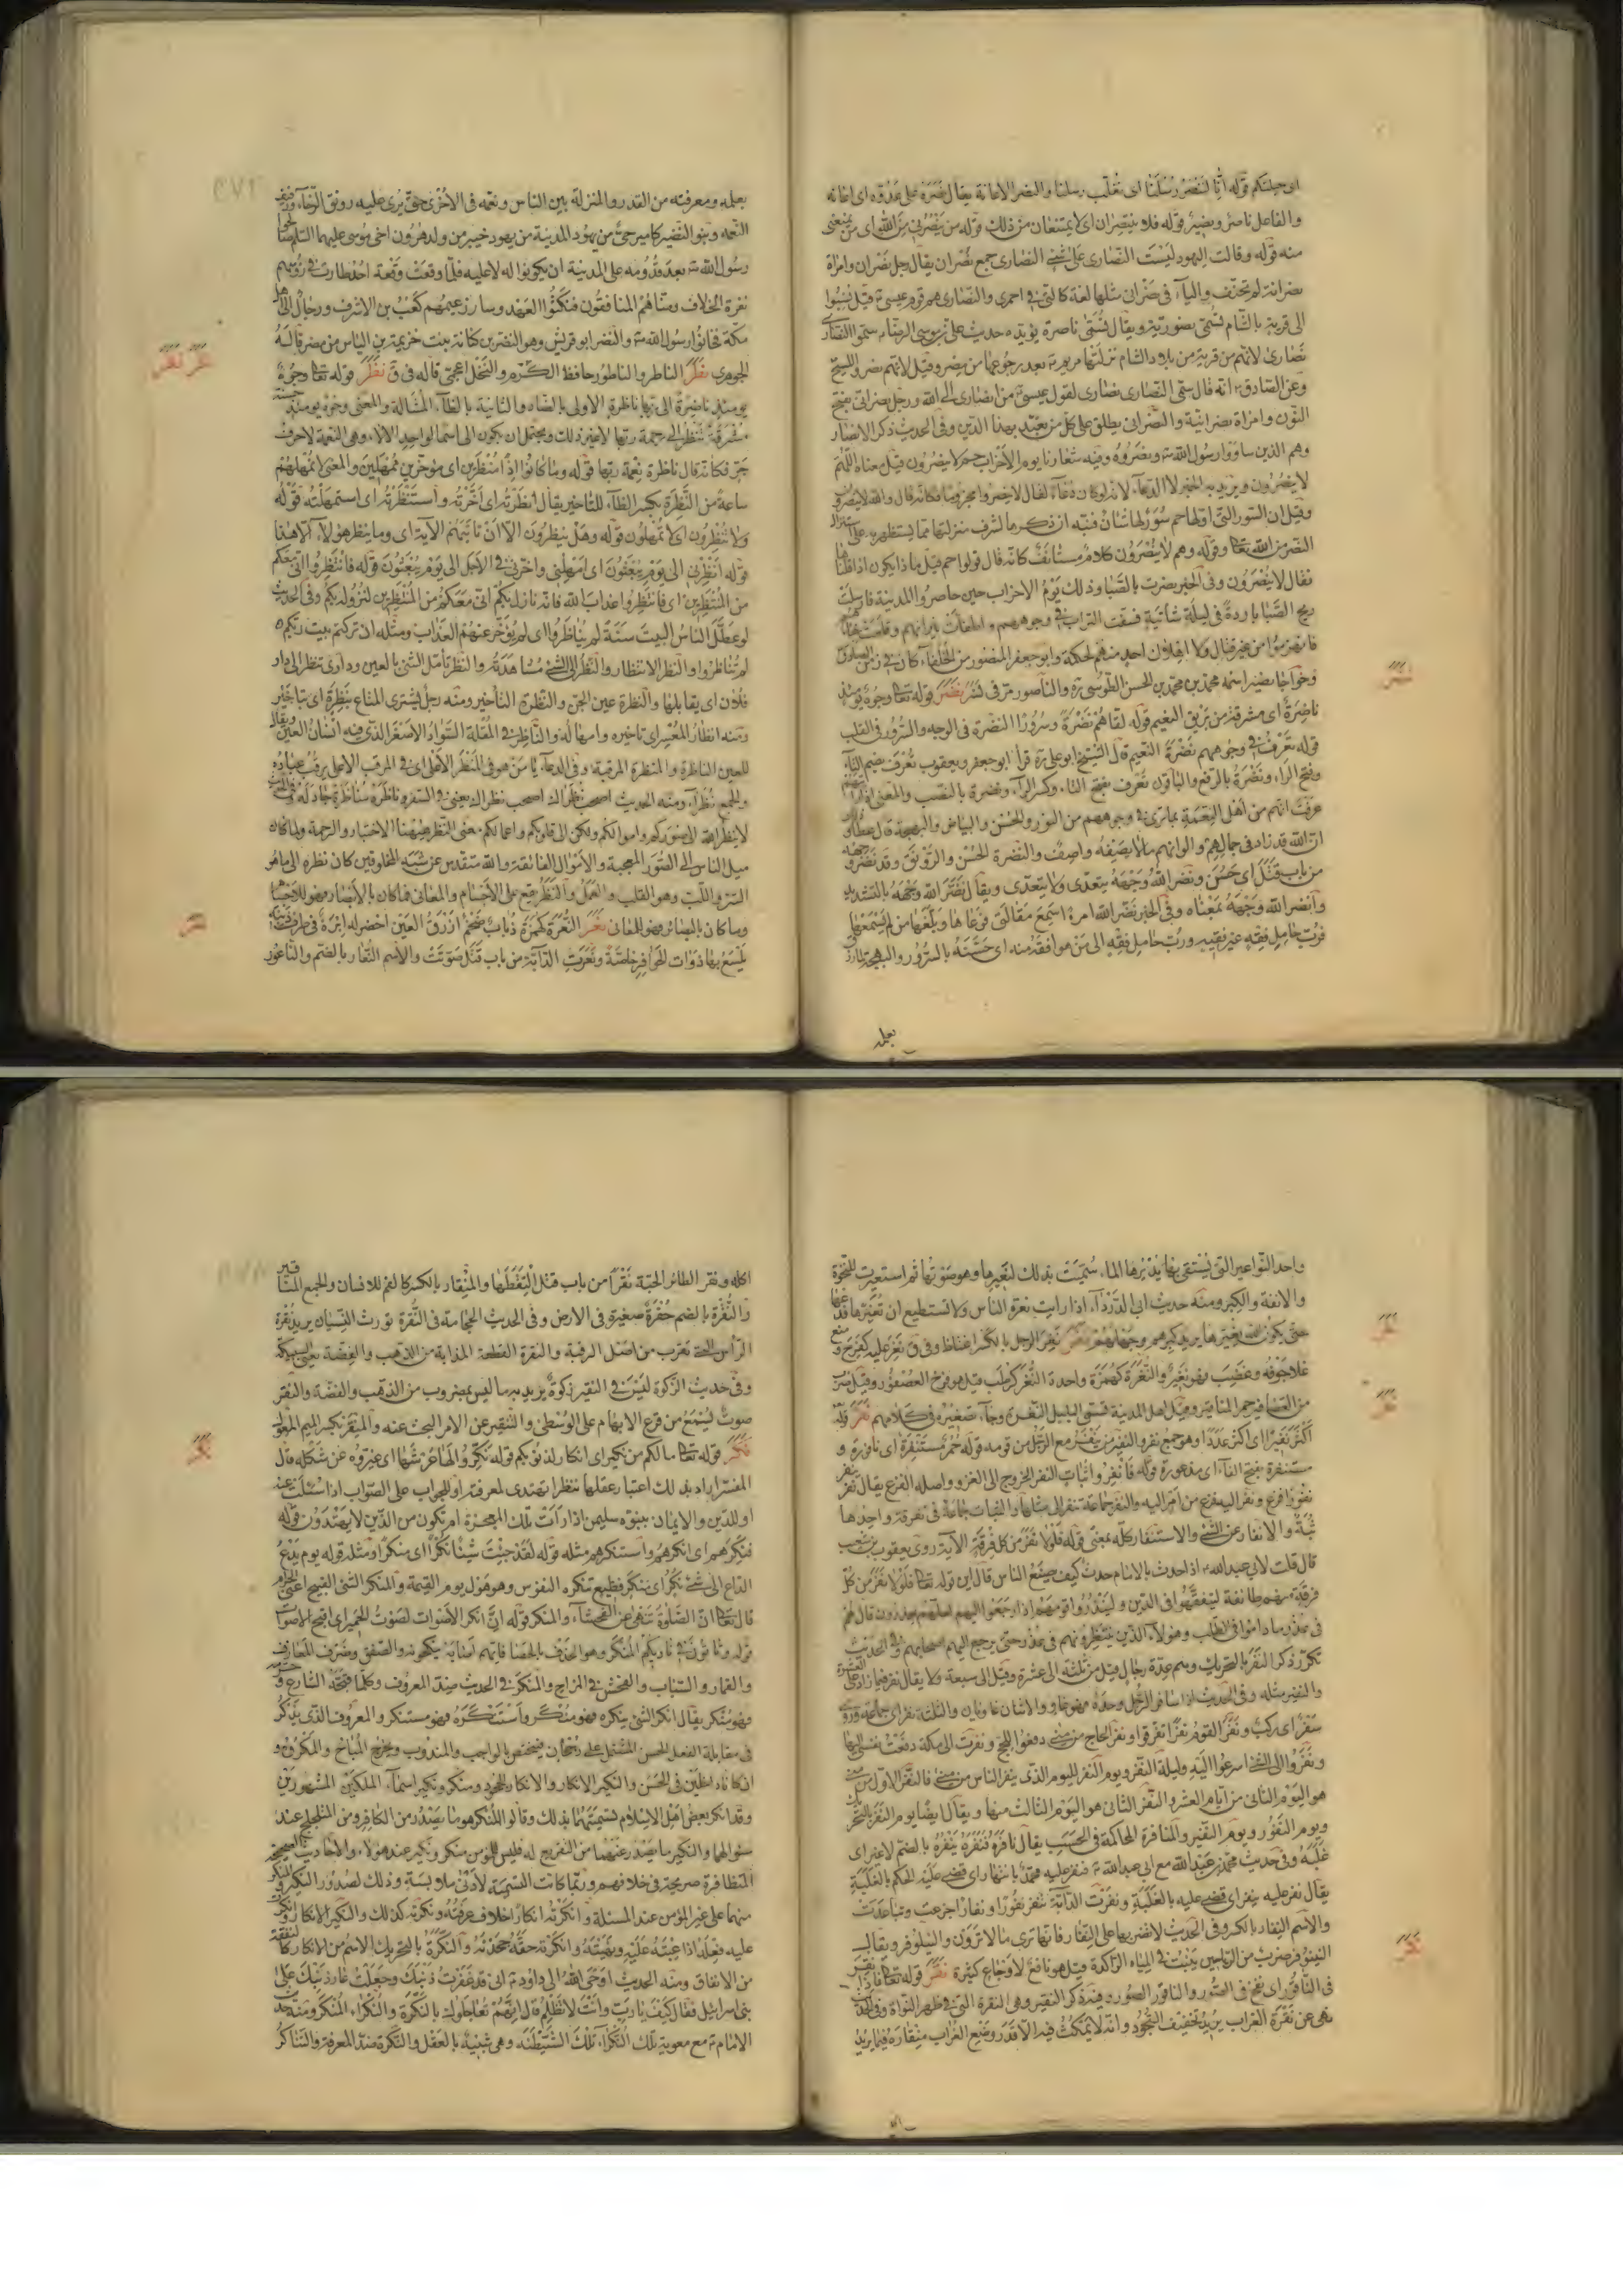 اى حيلتكم قوله انا لننصر رسلنا اى نغلب رسلنا والنصر الاعانة يقال نصره على عدوه اى اعانه
والفاعل ناصر ونصير قوله فلا ينتصران اى لا يمتنعان من ذلك قوله من ينصرنى من الله اى من يمنعنى
منه قوله وقالت اليهود ليست النصارى على شئ النصارى جمع نصران يقال رجل نصران وامراة
نصرانة لم تحذف والياء فى نصرانى مثلها لغة كالتى فى احمرى والنصارى هم قوم عيسى قيل نسبوا
الى قرية بالشام تسمى نصورية ويقال تسمى ناصرة يؤيده حديث على بن موسى الرضا سموا النصارى
نصارى لانهم من قرية من بلاد الشام نزلتها مريم بعد رجوعها من مصر وقيل لانهم نصروا المسيح
وعن الصادق انه قال سمى النصارى نصارى لقول عيسى من انصارى الى الله ورجل نصرانى بفتح
النون وامراة نصرانية والنصرانى يطلق على كل من تعبد بهذا الدين وفى الحديث ذكر الانصار
وهم الذين ساووا رسول الله ونصروه وفيه شعارنا يوم الاحزاب حم لا ينصرون قيل معناه اللهم
لا ينصرون ويريد به الخبر لا الدعاء لانه لو كان دعاء لقال لا ينصروا مجزوما فكانه قال والله لا ينصرون
وقيل ان السور التى اولها حم سور لها شان فنبه ان ذكرها لشرف منزلتها مما يستظهر به على استنزال
النصر من الله تعالى وقوله وهم لا ينصرون كلام مستانف كانه قال قولوا حم قيل ماذا يكون اذا قلناها
فقال لا ينصرون وفى الخبر نصرت بالصبا وذلك يوم الاحزاب حين حاصروا المدينة فارسلت
ريح الصبا باردة فى ليلة شاتية فسفت التراب فى وجوههم واطفات نيرانهم
فانهزموا من غير قتال ولا اهلاك احد منهم لحكمة وابو جعفر المنصور من الخلفاء كان فى زمن الصادق
وخواجا نصير اسمه محمد بن محمد بن الحسن الطوسى والناصور مر فى نسر نضر قوله تعالى وجوه يومئذ
ناضرة اى مشرقة من بريق النعيم قوله لقاهم نضرة وسرورا النضرة فى الوجه والسرور فى القلب
قوله تعرف فى وجوههم نضرة النعيم قال الشيخ ابو على قرا ابو جعفر ويعقوب تعرف بضم التاء
وفتح الراء ونضرة بالرفع والباقون تعرف بفتح التاء وكسر الراء ونضرة بالنصب والمعنى اذا رايتهم
عرفت انهم من اهل النعمة بما ترى فى وجوههم من النور والحسن والبياض والبهجة قال عطاء
ان الله قد زاد فى جمالهم والوانهم ما لا يصفه واصف والنضرة الحسن والرونق وقد نضر وجهه
من باب قتل اى حسن ونضر الله وجهه يتعدى ولا يتعدى ويقال نضر الله وجهه بالتشديد
وانضر الله وجهه بمعناه وفى الخبر نضر الله امرءا سمع مقالتى فوعاها وبلغها من لم يسمعها
فرب حامل فقه غير فقيه ورب حامل فقه الى من هو افقه منه اى حسنه بالسرور والبهجة
بعلمه
بعلمه ومعرفته من القدر والمنزلة بين الناس ونعمه فى الاخرى حتى يرى عليه رونق الرخاء ورفيف
النعمه وبنو النضير كامير حى من يهود المدينة من يهود خيبر من ولد هرون اخى موسى عليهما السلام صالحوا
رسول الله بعد قدومه على المدينة ان يكونوا له لا عليه فلما وقعت وقعة احد طارت فى رؤسهم
نعرة الخلاف ومناهم المنافقون فنكثوا العهد وسار زعيمهم كعب بن الاشرف ورجال الى اهل
مكة فخانوا رسول الله والنضر ابو قريش وهو النضر بن كنانة بن خزيمة بن الياس من مضر قاله
الجوهرى نطر الناطر والناطور حافظ الكرم والنخل اعجمى قاله فى ق نظر قوله تعالى وجوه
يومئذ ناضرة الى ربها ناظرة الاولى بالضاد والثانية بالظاء المشالة والمعنى وجوه يومئذ حسنة
مشرقة تنظر الى رحمة ربها لا غير ذلك ويحتمل ان يكون الى اسما لواحد الالاء وهى النعمة لا حرف
جر فكانه قال ناظرة نعمة ربها قوله وما كانوا اذا منظرين اى مؤخرين ممهلين والمعنى لا نمهلهم
ساعة من النظرة بكسر الظاء للتاخير يقال انظرته اى اخرته واستنظرته اى استمهلته قوله
ولا تنظرون اى لا تمهلون قوله وهل ينظرون الا ان تاتيهم الاية اى وما ينظر هؤلاء الا هذا
قوله انظرنى الى يوم يبعثون اى امهلنى واخرنى فى الاجل الى يوم يبعثون قوله فانتظروا انى معكم
من المنتظرين اى فانتظروا عذاب الله فانه نازل بكم انى معكم من المنتظرين لنزوله بكم وفى الحديث
لو عطل الناس البيت سنة لم يناظروا اى لم يؤخر عنهم العذاب ومثله ان تركتم بيت ربكم
لم تناظروا والنظر الانتظار والنظر الى الشئ مشاهدته والنظر تامل الشئ بالعين ودارى تنظر الى دار
فلان اى يقابلها والنظرة عين الجن والنظرة التاخير ومنه رجل يشترى المتاع بنظرة اى بتاخير
ومنه انظار المعسر اى تاخيره وامهاله والناظر فى المقلة السواد الاصغر الذى فيه انسان العين ويقال
للعين الناظرة والمنظرة المرقبة وفى الدعاء يا من هو فى المنظر الاعلى اى فى المرقب الاعلى يرقب عباده
والجمع نظراء ومنه الحديث اصحب نظراءك يعنى فى السفر وناظره مناظرة جادله وفى الحديث
لا ينظر الله الى صوركم واموالكم ولكن الى قلوبكم واعمالكم معنى النظر ههنا الاختيار والرحمة ولما كان
ميل الناس الى الصور المعجبة والاموال الفائقة والله متقدس عن شبه المخلوقين كان نظره الى ما هو
السر واللب وهو القلب والعمل والنظر يقع على الاجسام والمعانى فما كان بالابصار فهو للاجسام
وما كان بالبصائر فهو للمعانى نعر النعرة كهمزة ذباب ضخم ازرق العين اخضر له ابرة فى طرف ذنبه
يلسع بها ذوات الحوافر خاصة ونعرت الدابة من باب قتل صوتت والاسم النعار بالضم والناعور
واحد النواعير التى يستقى بها يديرها الماء سميت بذلك لنعيرها وهو صوتها ثم استعيرت للنخوة
والانفة والكبر ومنه حديث ابى الدرداء اذا رايت نعرة الناس ولا تستطيع ان تغيرها فدعها
حتى يكون الله يغيرها يريد كبرهم وجهلهم نغر نغر الرجل بالكسر اغتاظ وفى ق نغر عليه كفرح ومنع
غلا جوفه وغضب فهو نغر والنغرة كهمزة واحدة النغر كرطب قيل هو فرخ العصفور وقيل ضرب
من العصافير حمر المناقير وقيل اهل المدينة تسمى البلبل النغرة وجاء تصغيره فى كلامهم نفر قوله
اكثر نفيرا اى اكثر عددا وهو جمع نفر والنفير من ينفر مع الرجل من قومه قوله حمر مستنفرة اى نافرة و
مستنفرة بفتح الفاء اى مذعورة قوله فانفروا ثبات النفر الخروج الى الغزو واصله الفزع يقال نفر ينفر
نفورا فزع ونفر اليه فزع من امر اليه والنفر جماعة تنفر الى مثلها والثبات جماعة فى تفرقة واحدها
ثبة والانفار عن الشئ والاستنفار كله بمعنى قوله فلولا نفر من كل فرقة الاية روى يعقوب بن شعيب
قال قلت لابى عبد الله اذا حدث بالامام حدث كيف يصنع الناس قال اين قوله تعالى فلولا نفر من كل
فرقة منهم طائفة ليتفقهوا فى الدين ولينذروا قومهم اذا رجعوا اليهم لعلهم يحذرون قال هم
فى عذر ما داموا فى الطلب وهؤلاء الذين ينتظرونهم فى عذر حتى يرجع اليهم اصحابهم وفى الحديث
تكرر ذكر النفر بالتحريك وهم عدة رجال قيل من ثلثة الى عشرة وقيل الى سبعة ولا يقال نفر فيما زاد على العشرة
والنفير مثله وفى الحديث اذا سافر الرجل وحده فهو غاو والاثنان غاويان والثلثة نفر اى جماعة وروى
سفر اى ركب ونفر القوم نفرا تفرقوا ونفر الحاج من منى دفعوا للحج ونفرت الى مكة دفعت بنفسى اليها
ونفروا الى الشئ اسرعوا اليه وليلة النفر ويوم النفر لليوم الذى ينفر الناس من منى فالنفر الاول من منى
هو اليوم الثانى من ايام التشريق والنفر الثانى هو اليوم الثالث منها ويقال ايضا يوم النفر بالتحريك
ويوم النفور ويوم النفير والمنافرة المحاكمة فى الحسب يقال نافره فنفره ينفره بالضم لا غير اى
غلبه وفى حديث محمد بن عبد الله مع ابى عبد الله فنفر عليه محمد بانتهار اى قضى عليه الحكم بالغلبة
يقال نفر عليه ينفر اى قضى عليه بالغلبة ونفرت الدابة تنفر نفورا ونفارا جزعت وتباعدت
والاسم النفار بالكسر وفى الحديث لا تضربها على النفار فانها ترى ما لا ترون والنيلوفر ويقال
النينوفر ضرب من الرياحين ينبت فى المياه الراكدة قيل هو نافع لاوجاع كثيرة نقر قوله تعالى فاذا نقر
فى الناقور اى نفخ فى الصور والناقور الصور وفيه ذكر النقير وهى النقرة التى فى ظهر النواة وفى الحديث
نهى عن نقرة الغراب يريد تخفيف السجود وانه لا يمكث فيه الا قدر وضع الغراب منقاره فيما يريد
اكله ونقر الطائر الحبة نقرا من باب قتل التقطها والمنقار بالكسر كالفم للانسان والجمع المناقير
والنقرة بالضم حفرة صغيرة فى الارض وفى الحديث الحجامة فى النقرة تورث النسيان يريد نقرة
الراس التى تقرب من اصل الرقبة والنقرة القطعة المذابة من الذهب والفضة يعنى السبيكة
وفى حديث الزكوة ليس فى النقير زكوة يريد به ما ليس بمضروب من الذهب والفضة والنقر
صوت يسمع من قرع الابهام على الوسطى والتنقير عن الامر البحث عنه والمنقر بكسر الميم المعول
نكر قوله تعالى ما لكم من نكير اى انكار لذنوبكم قوله نكروا لها عرشها اى غيروه عن شكله قال
المفسر اراد بذلك اعتبار عقلها ننظر اتهتدى لمعرفته او للجواب على الصواب اذا سئلت عنه
او للدين والايمان بنبوة سليمن اذا رات تلك المعجزة ام تكون من الذين لا يهتدون قوله
نكرهم اى انكرهم واستنكرهم مثله قوله لقد جئت شيئا نكرا اى منكرا ومثله قوله يوم يدع
الداع الى شئ نكر اى منكر فظيع تنكره النفوس وهو هول يوم القيمة والمنكر الشئ القبيح اعنى الحرام
قال تعالى ان الصلوة تنهى عن الفحشاء والمنكر قوله ان انكر الاصوات لصوت الحمير اى اقبح الاصوات
قوله وتاتون فى ناديكم المنكر وهو الحذف بالحصا فايهم اصابه ينكحونه والصفق وضرب المعازف
والقمار والسباب والفحش فى المزاح والمنكر فى الحديث ضد المعروف وكلما قبحه الشارع وحرمه
فهو منكر يقال انكر الشئ ينكره فهو منكر واستنكره فهو مستنكر والمعروف الذى يذكر
فى مقابلة الفعل الحسن المشتمل على رجحان فيختص بالواجب والمندوب ويخرج المباح والمكروه و
ان كانا داخلين فى الحسن والنكير الانكار والانكار الجحود ومنكر ونكير اسماء الملكين المشهورين
وقد انكر بعض اهل الاسلام تسميتهما بذلك وقالوا المنكر هو ما يصدر من الكافر من المتلجلج عند
سؤالهما والنكير ما يصدر عنهما من التقريع له فليس للمؤمن منكر ونكير عند هؤلاء والاحاديث الصحيحة
المتظافرة صريحة فى خلافهم وربما كانت التسمية لادنى ملابسة وذلك لصدور النكير والنكر
منهما على غير المؤمن عند المسئلة وانكرته انكارا خلاف عرفته ونكرته كذلك والنكير الانكار وانكر
عليه فعله اذا عبته عليه ونهيته وانكرته حقه جحدته والنكرة بالتحريك الاسم من الانكار كالنفقة
من الانفاق ومنه الحديث اوحى الله الى داود انى قد غفرت ذنبك وجعلت عار ذنبك على
بنى اسرائيل فقال كيف يا رب وانت لا تظلم قال انهم لم يعاجلوك بالنكرة والنكراء المنكر ومنه حديث
الامام مع معوية تلك النكراء تلك الشيطنة وهى شبيهة بالعقل والنكرة ضد المعرفة والتناكر